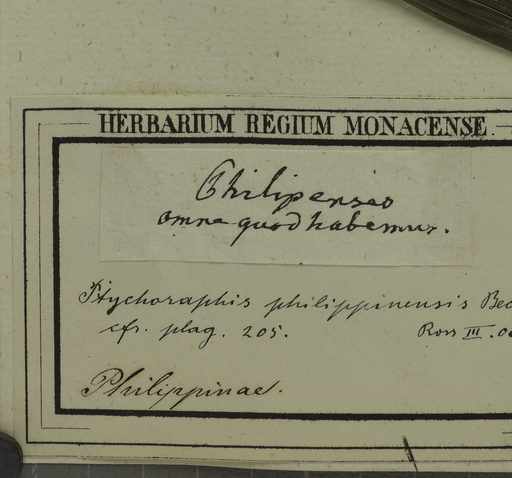 HERBARIUM REGIUM MONACENSE.
Philipenses
omne quod habemus.
Ptychoraphis philippinensis Becc
cfr. plag. 205. Ross III. 06
Philippinae.